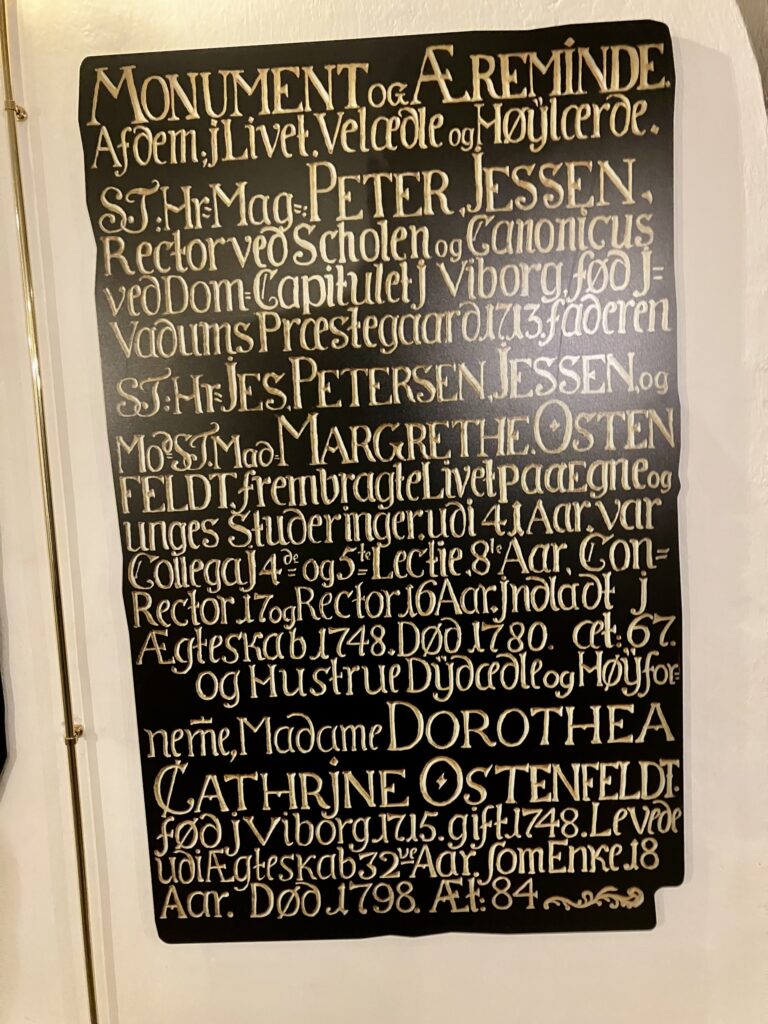 MONUMENT OG ÆREMINDE.
Af dem, j Livet. Velædle og Høÿlærde.
S.T: Hr= Mag=: PETER JESSEN.
Rector ved Scholen og Canonicus
ved Dom=Capitulet j Viborg, fød J=
Vadums Præstegaard 1713, faderen
S.T: Hr= JES. PETERSEN. JESSEN. og
Mod= S.T. Mad= MARGRETHE. OSTEN
FELDT, frembragte Livet paa Egne og
unges Studeringer. udi 41 Aar. var
Collega J 4de og 5te Lectie. 8te Aar. Con=
Rector. 17 og Rector 16 Aar. Jndladt j
Ægteskab 1748. Død. 1780. æt: 67.
og Hustrue Dÿdædle og Høÿfor=
nem̅e, Madame DOROTHEA
CATHRJNE OSTENFELDT.
fød j Viborg. 1715. gift 1748. Levede
udi Ægteskab 32ve Aar. som Enke 18
Aar. Død. 1798. Æt: 84